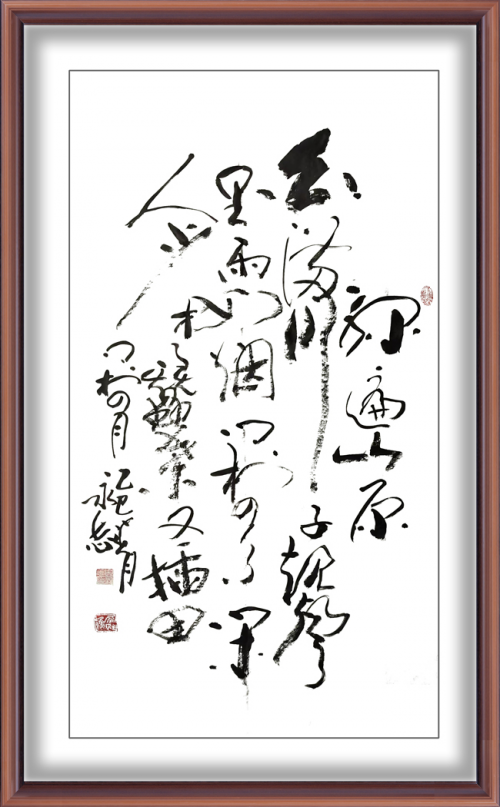 綠遍山原
白满川子規聲
里雨如烟乡村四月闲
人少才了蠶桑又插田
乡村四月